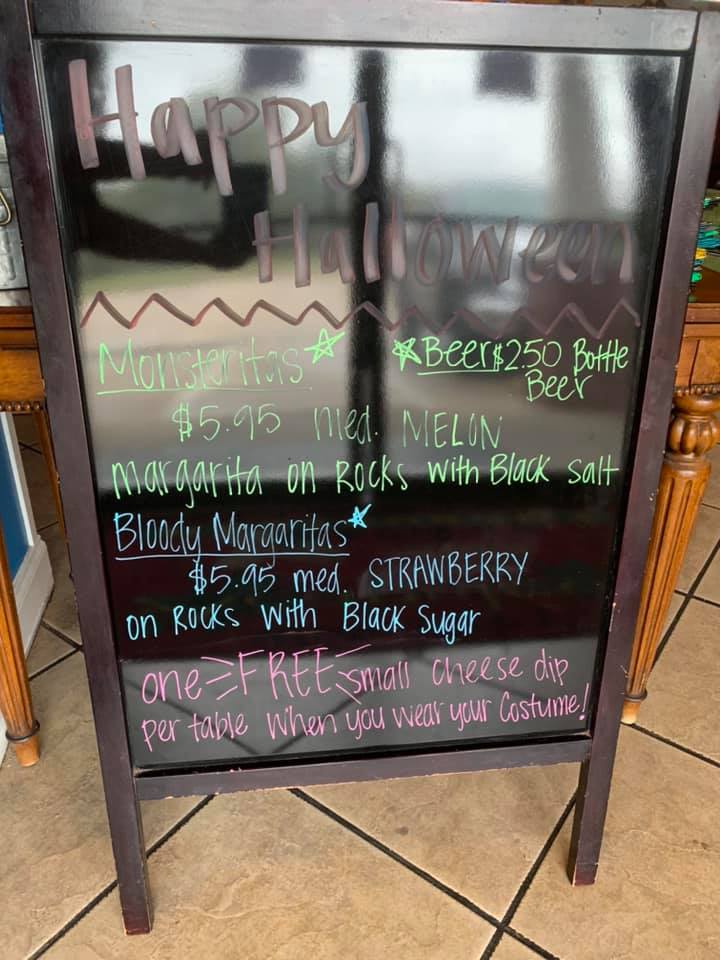 Happy
Halloween
Monsteritas
Beer $2.50 Bottle
Beer
$5.95 med. MELON
margarita on Rocks with Black salt
Bloody Margaritas
$5.95 med. STRAWBERRY
on Rocks with Black Sugar
one FREE small cheese dip
per table when you wear your Costume!